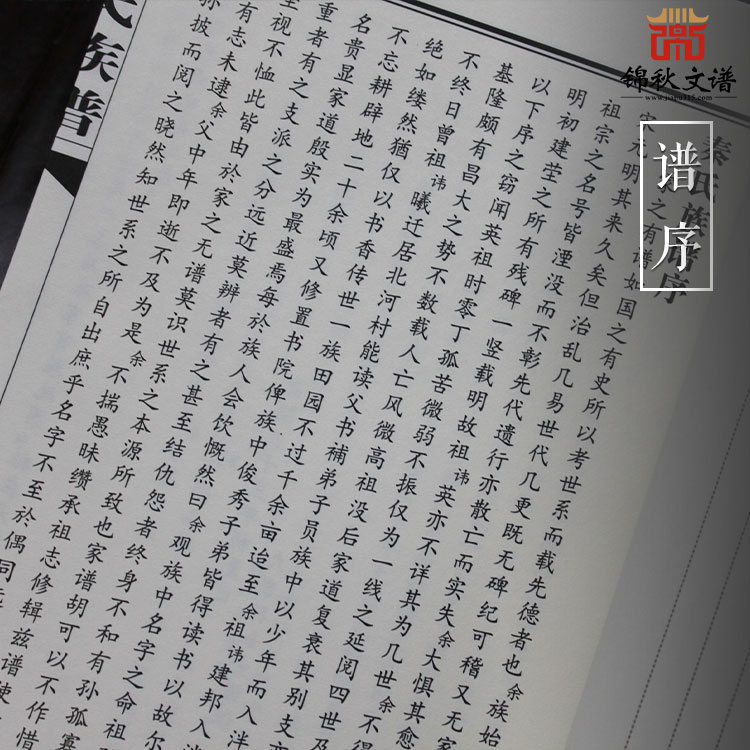 锦秋文谱
谱序
秦氏族谱序
之有谱如国之有史所以考世系而载先德者也余族始
宋元明其来久矣但治乱几易世代几更既无碑纪可稽又无家
祖宗之名号皆湮没而不彰先代遗行亦散亡而实失余大惧其愈
明初建茔之所有残碑一竖载明故祖讳英亦不详其为几世余不得
以下序之窃闻英祖时零丁孤苦微弱不振仅为一线之延阅四世及
基隆颇有昌大之势不数载人亡风微高祖没后家道复衰其别支亦
不终日曾祖讳曦迁居北河村能读父书補弟子员族中以少年而入泮
绝如缕然犹仅以书香传世一族田园不过千余亩迨至余祖讳建邦入泮
不忘耕辟地二十余顷又修置书院俾族中俊秀子弟皆得读书以故尔
名贵显家道殷实为最盛焉每於族人会饮慨然曰余观族中名字之命祖
重者有之支派之分远近莫辨者有之甚至结仇怨者终身不和有孙孤寡
至视不恤此皆由於家之无谱莫识世系之本源所致也家谱胡可以不作惜
有志未逮余父中年即逝不及为是余不揣愚昧缵承祖志修辑兹谱使
孙披而阅之晓然知世系之所自出庶乎名字不至於偶同
氏族谱